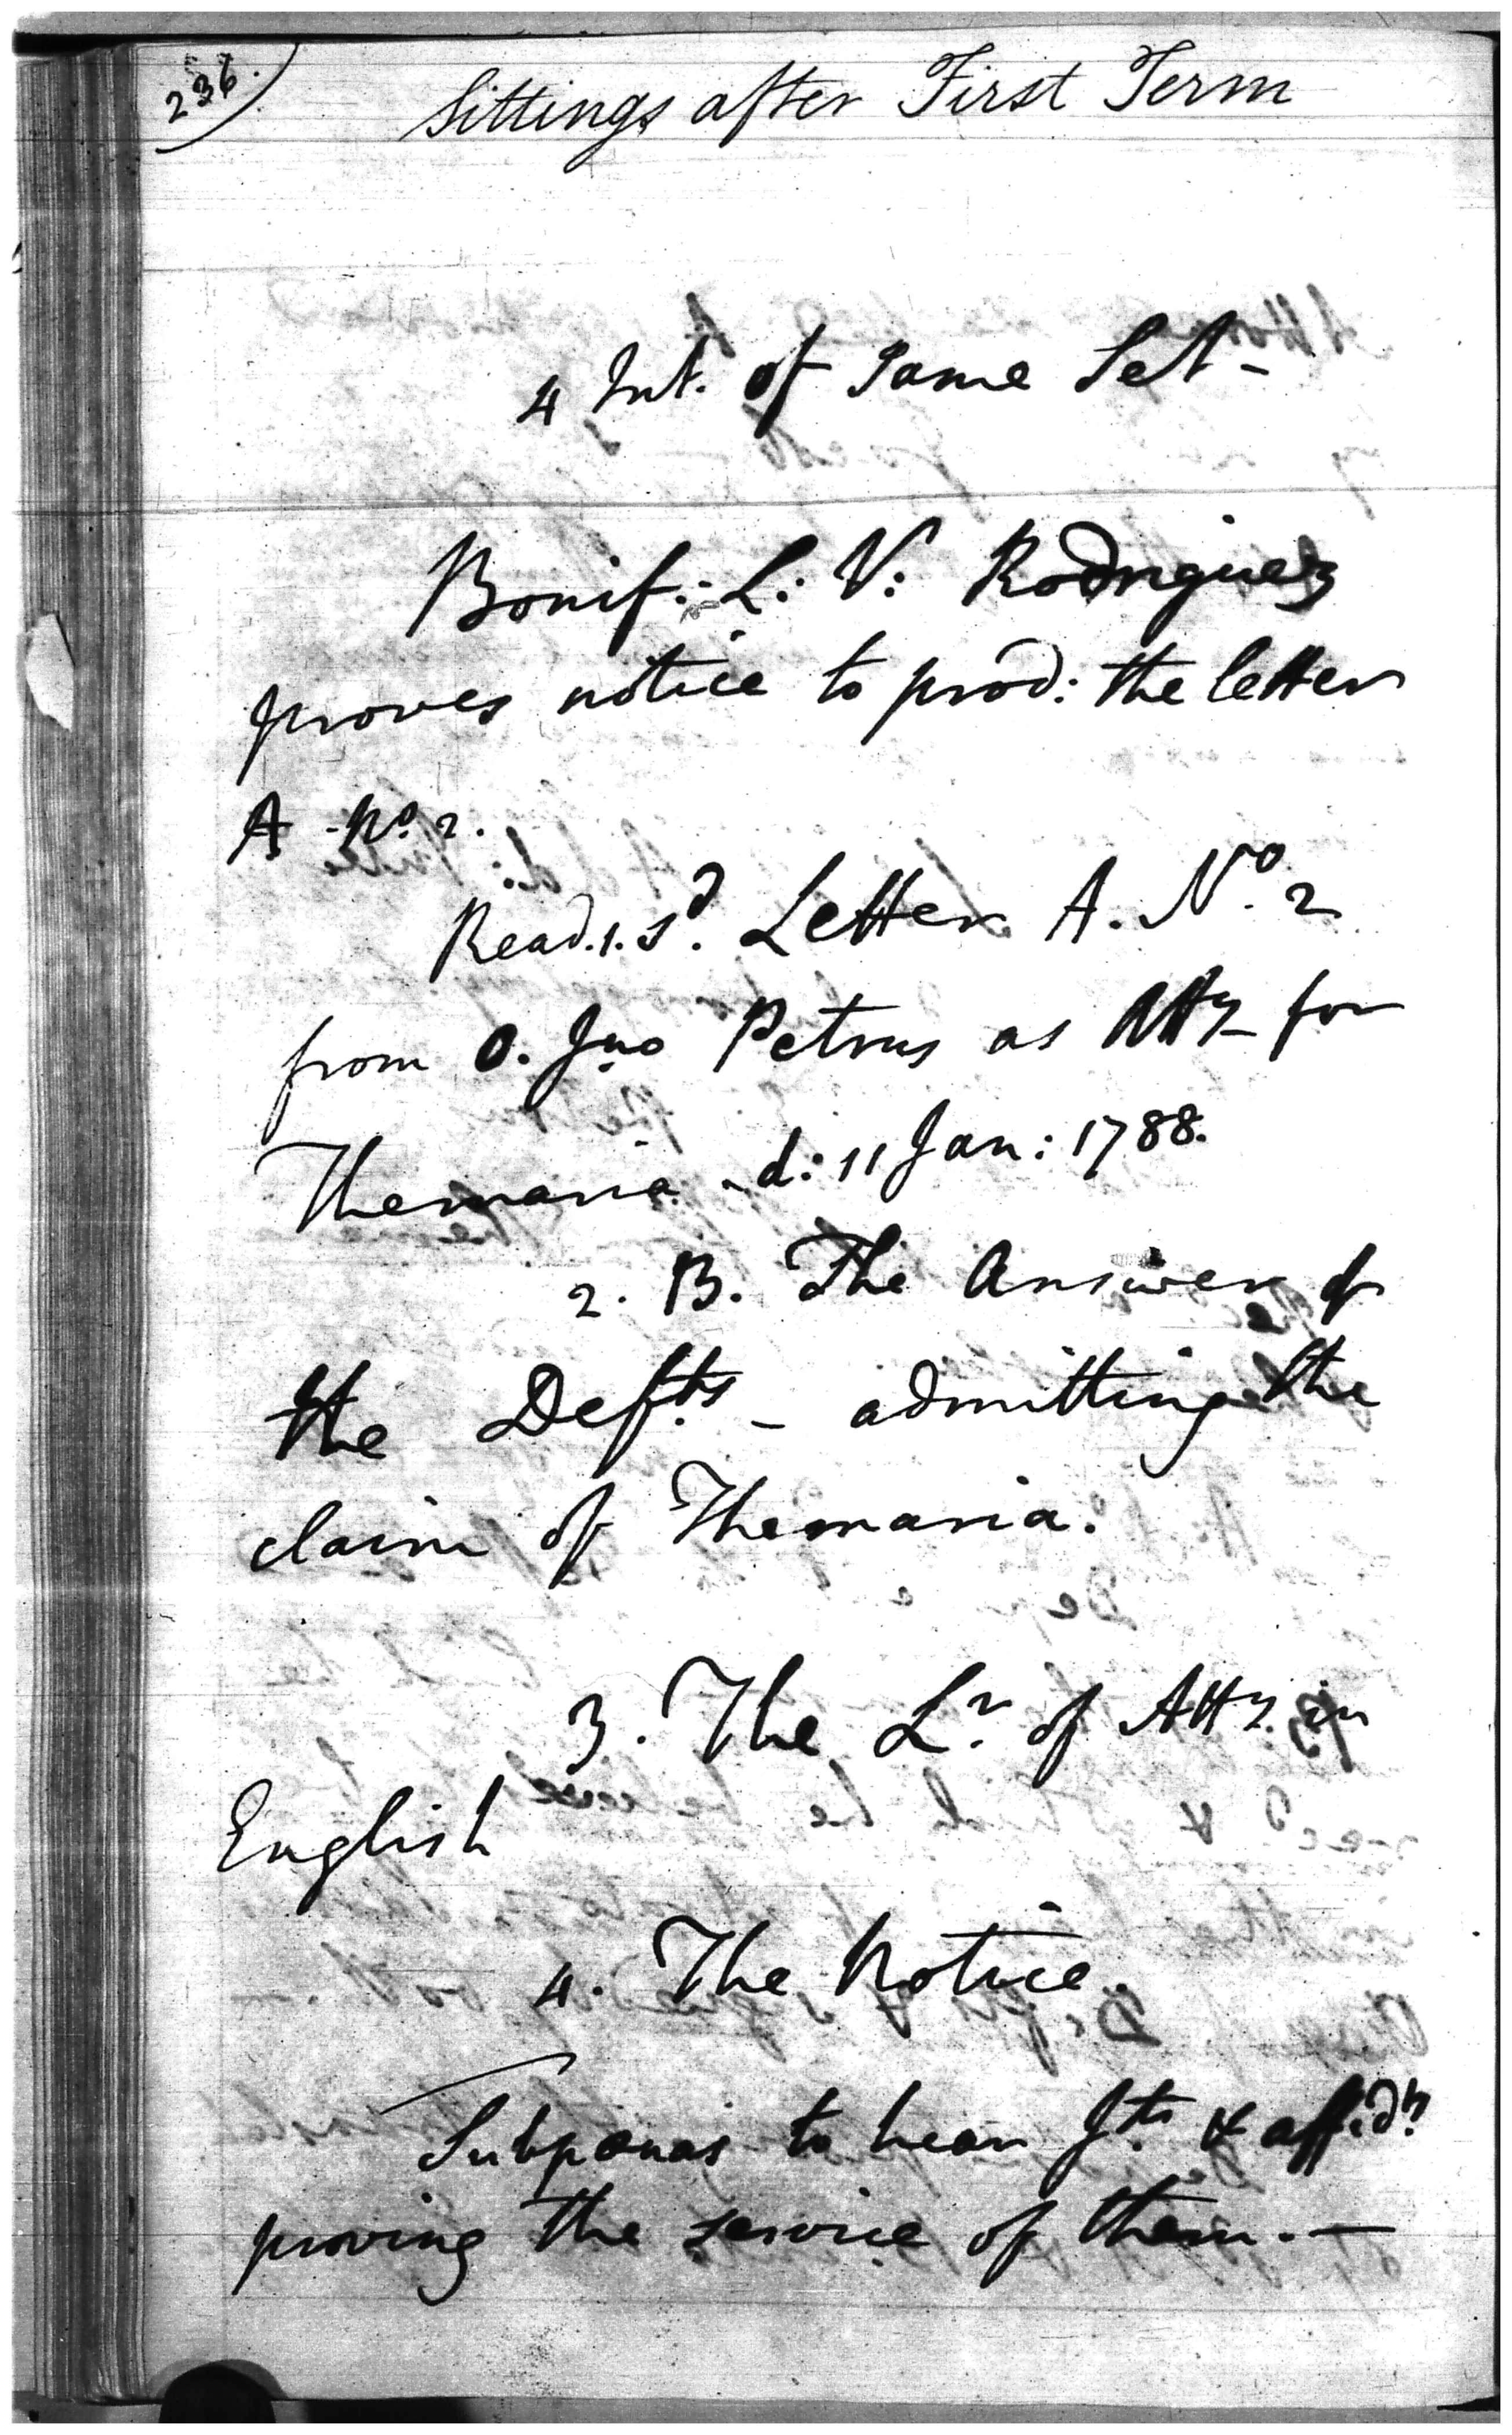 236.
Sittings after First Term
4 Int. of same Set -
Bonif: L: V: Rodriguez
proves notice to prod: the letter
A - No. 2.
Read. 1. sd. Letter A. No. 2
from O. Jno Petrus as Atty for
Themaria - d: 11 Jan: 1788.
2. B. The Answer of
the Defts - admitting the
claim of Themaria.
3. The Lr. of Atty. in
English
4. The Notice
Subpoenas to hear Jt. & affidts
proving the service of them. -